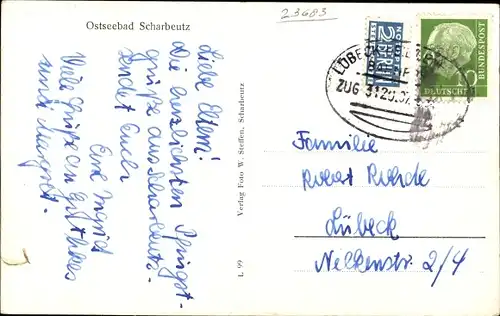 Ostseebad Scharbeutz
23683
Liebe Eltern!
Die herzlichsten Pfingst-
grüße aus Scharbeutz
sendet Euch
Eure Ingrid
Viele Grüße an
und Margret.
Verlag Foto W. Steffen, Scharbeutz
L 99
NOTOPFER
2 BERLIN
STEUERMARKE
DEUTSCHE BUNDESPOST
10
LÜBECK
ZUG 31
Familie
Robert Rohde
Lübeck
Nelkenstr. 2/4